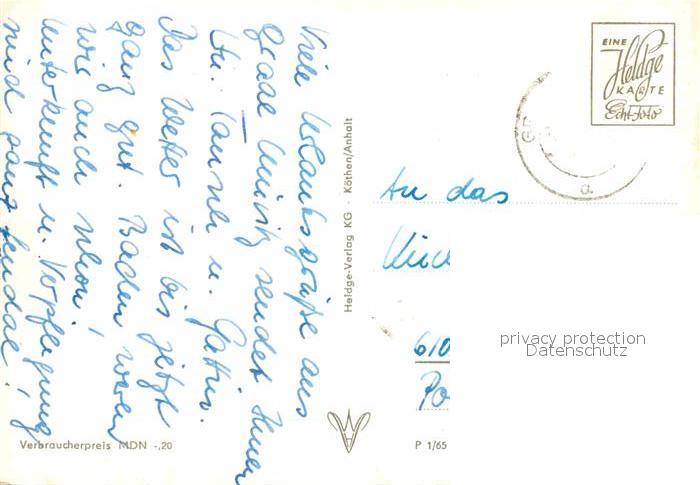 Viele Urlaubsgrüße aus
sendet Ihnen
u. Gattin.
Das Wetter ist bis jetzt
ganz gut. Baden waren
wir auch schon!
Unterkunft u. Verpflegung
sind ganz
Verbraucherpreis MDN -,20
Heldge-Verlag KG · Köthen/Anhalt
P 1/65
EINE
Heldge
KARTE
Echt-foto
An das
610
Po
privacy protection
Datenschutz